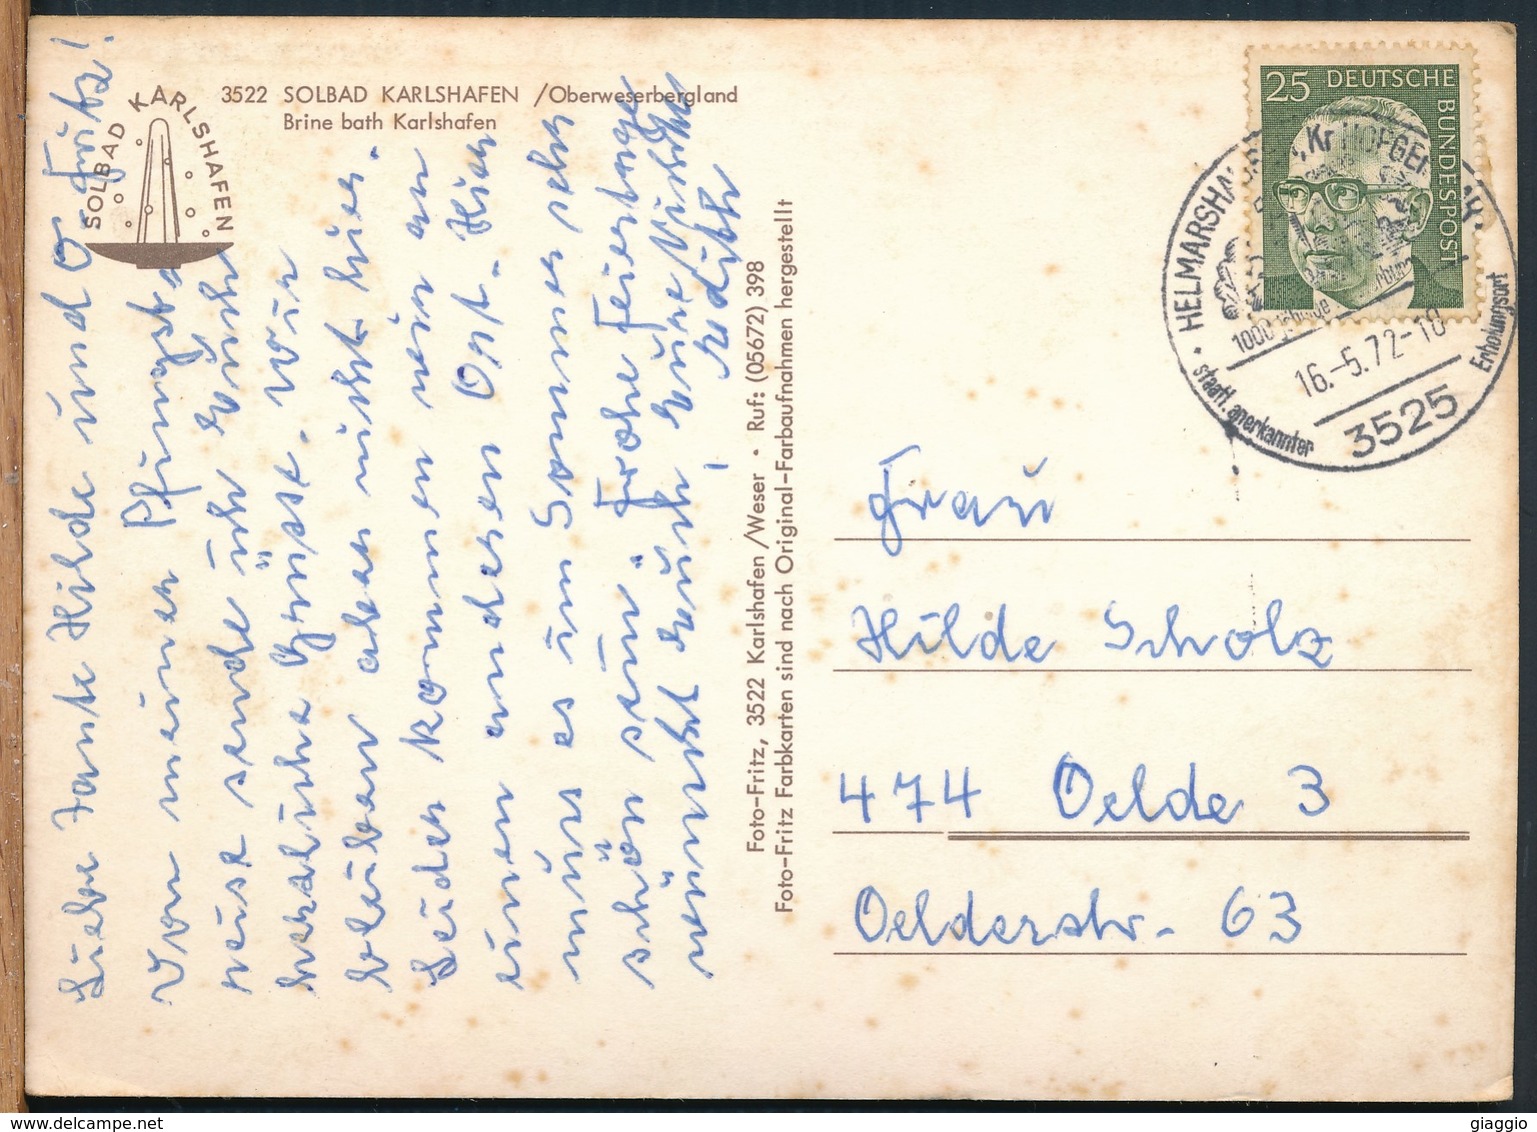 3522 SOLBAD KARLSHAFEN /Oberweserbergland
Brine bath Karlshafen
SOLBAD KARLSHAFEN
Liebe Tante Hilde und O. Fritz!
Von meiner Pfingst
reise sende ich Euch
herzliche Grüße. Wir
bleiben aber nicht hier.
Leider kommen wir an
einen anderen Ort. Hier
muss es im Sommer sehr
schön sein. Frohe Feiertage
wünscht Euch Eure Nichte
Edith
Foto-Fritz, 3522 Karlshafen /Weser • Ruf: (05672) 398
Foto-Fritz Farbkarten sind nach Original-Farbaufnahmen hergestellt
25 DEUTSCHE BUNDESPOST
HELMARSHAUSEN, Kr HOFGEISMAR
1000 jährige
16.-5.72-10
3525
staatl. anerkannter Erholungsort
Frau
Hilde Scholz
474 Oelde 3
Oelderstr. 63
giaggio